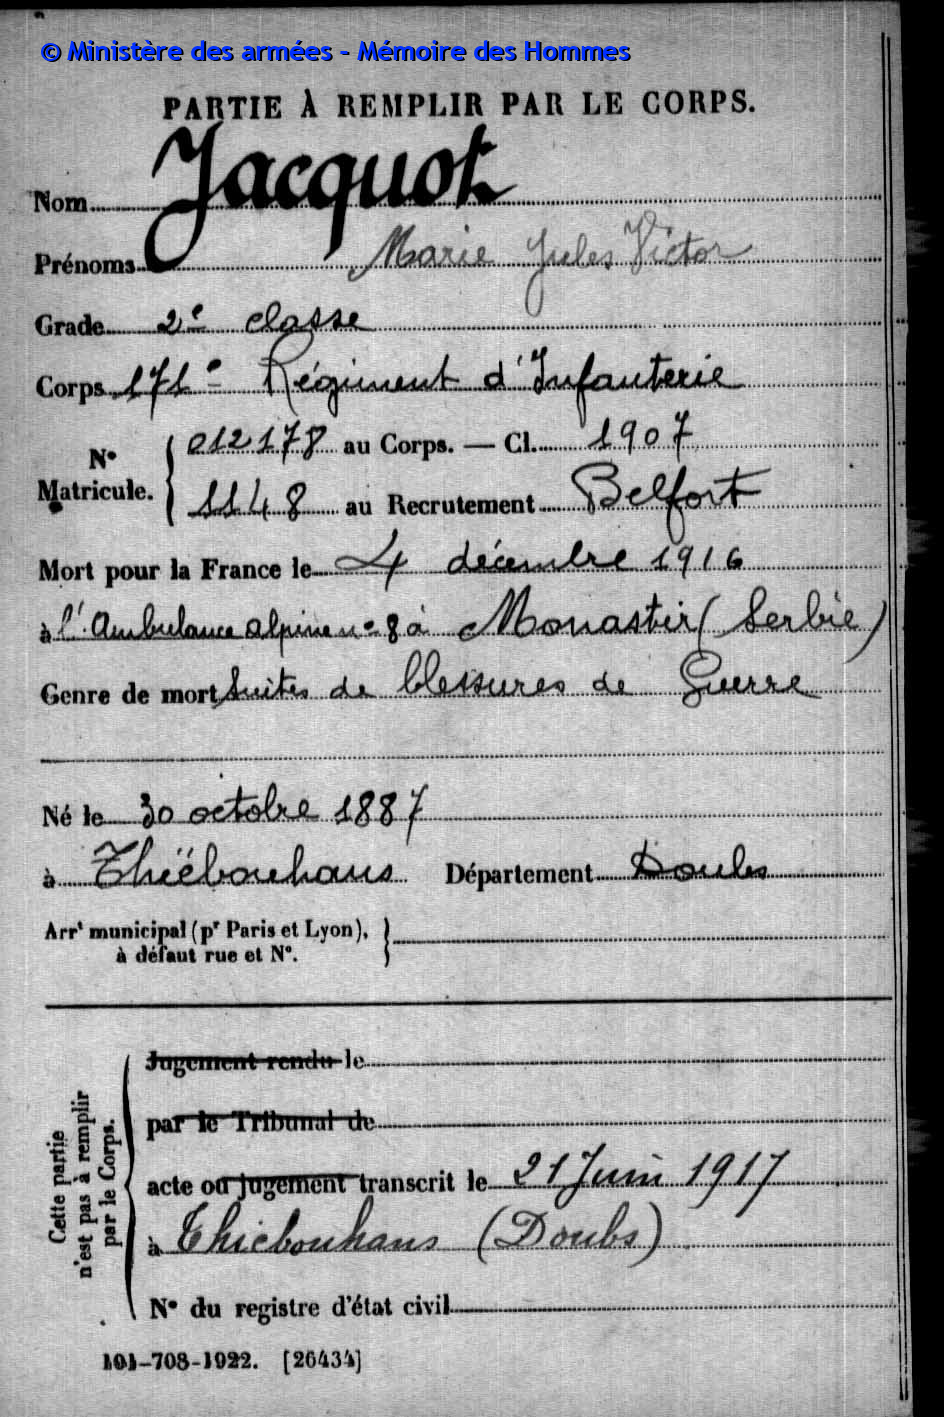 © Ministère des armées - Mémoire des Hommes
PARTIE À REMPLIR PAR LE CORPS.
Nom Jacquot
Prénoms Marie Jules Victor
Grade 2e classe
Corps 171e Régiment d'Infanterie
N° Matricule. 012178 au Corps. — Cl. 1907
1148 au Recrutement Belfort
Mort pour la France le 4 décembre 1916
à l'Ambulance alpine n° 8 à Monastir (Serbie)
Genre de mort Suites de blessures de Guerre
Né le 30 octobre 1887
à Thiébouhans Département Doubs
Arrt municipal (pr Paris et Lyon),
à défaut rue et N°.
Cette partie
n'est pas à remplir
par le Corps.
Jugement rendu le
par le Tribunal de
acte ou jugement transcrit le 21 Juin 1917
à Thiebouhans (Doubs)
N° du registre d'état civil
101-708-1922. [26434]